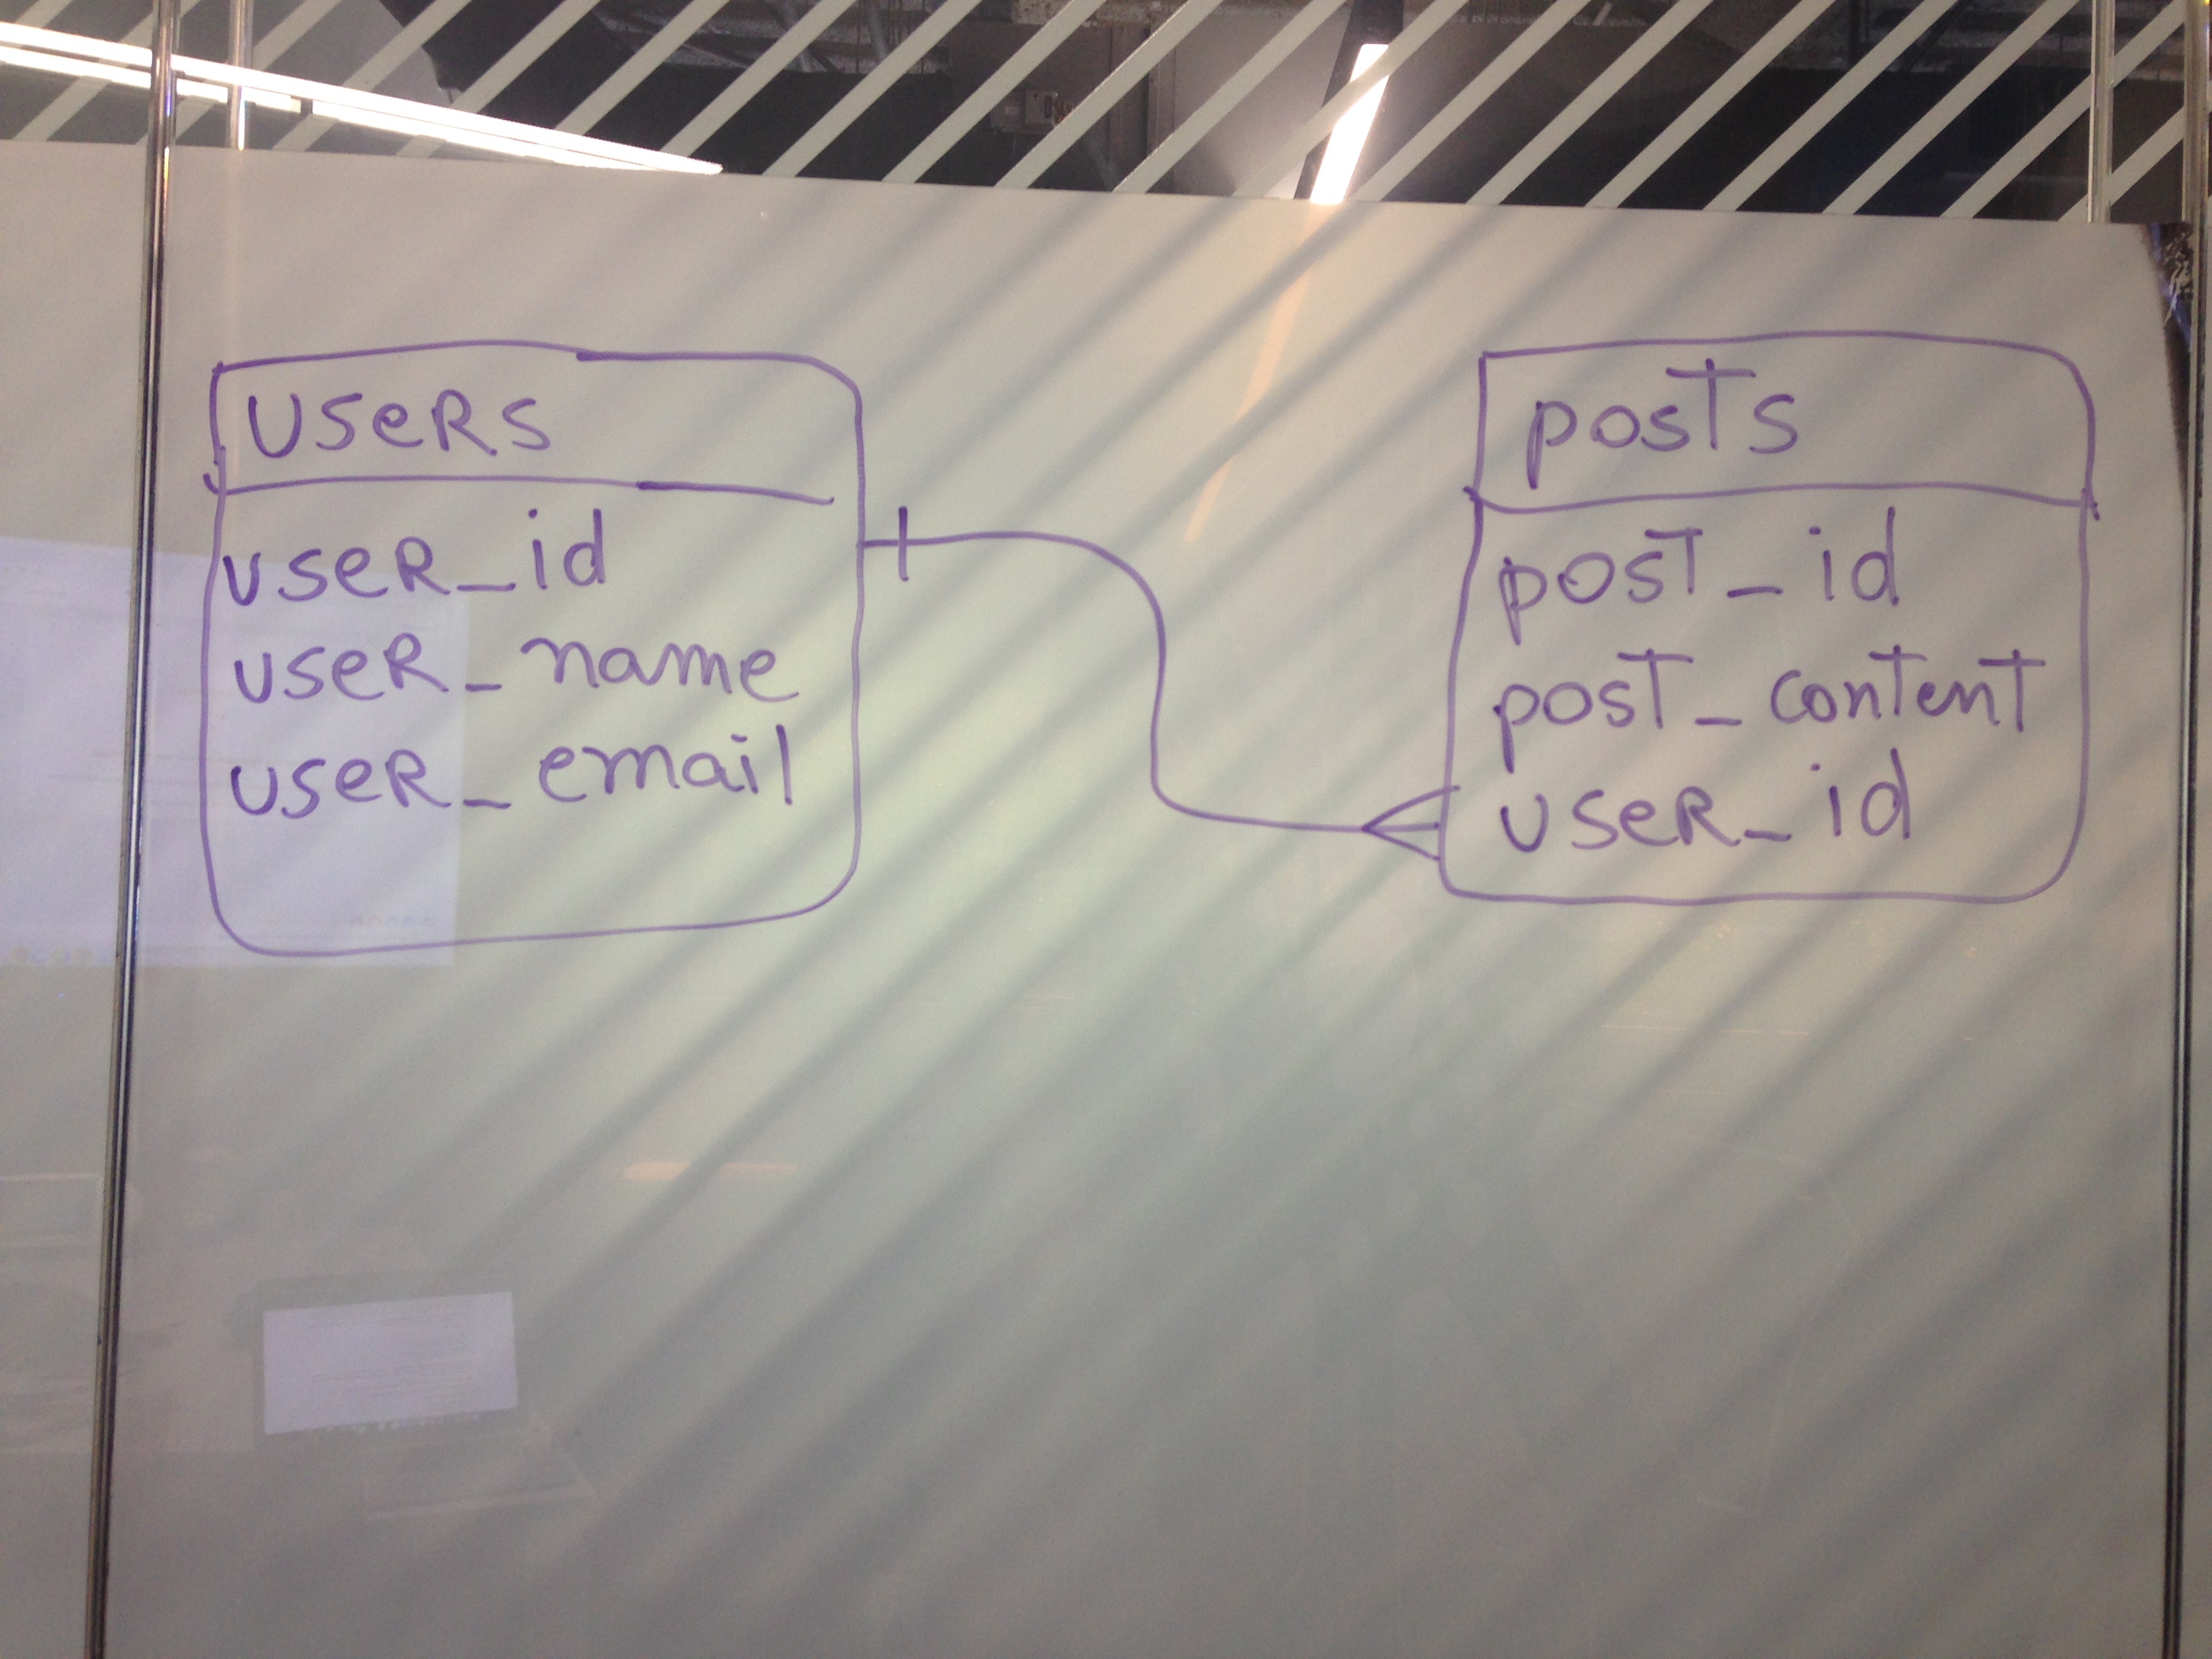 users
user_id
user_name
user_email
posts
post_id
post_content
user_id